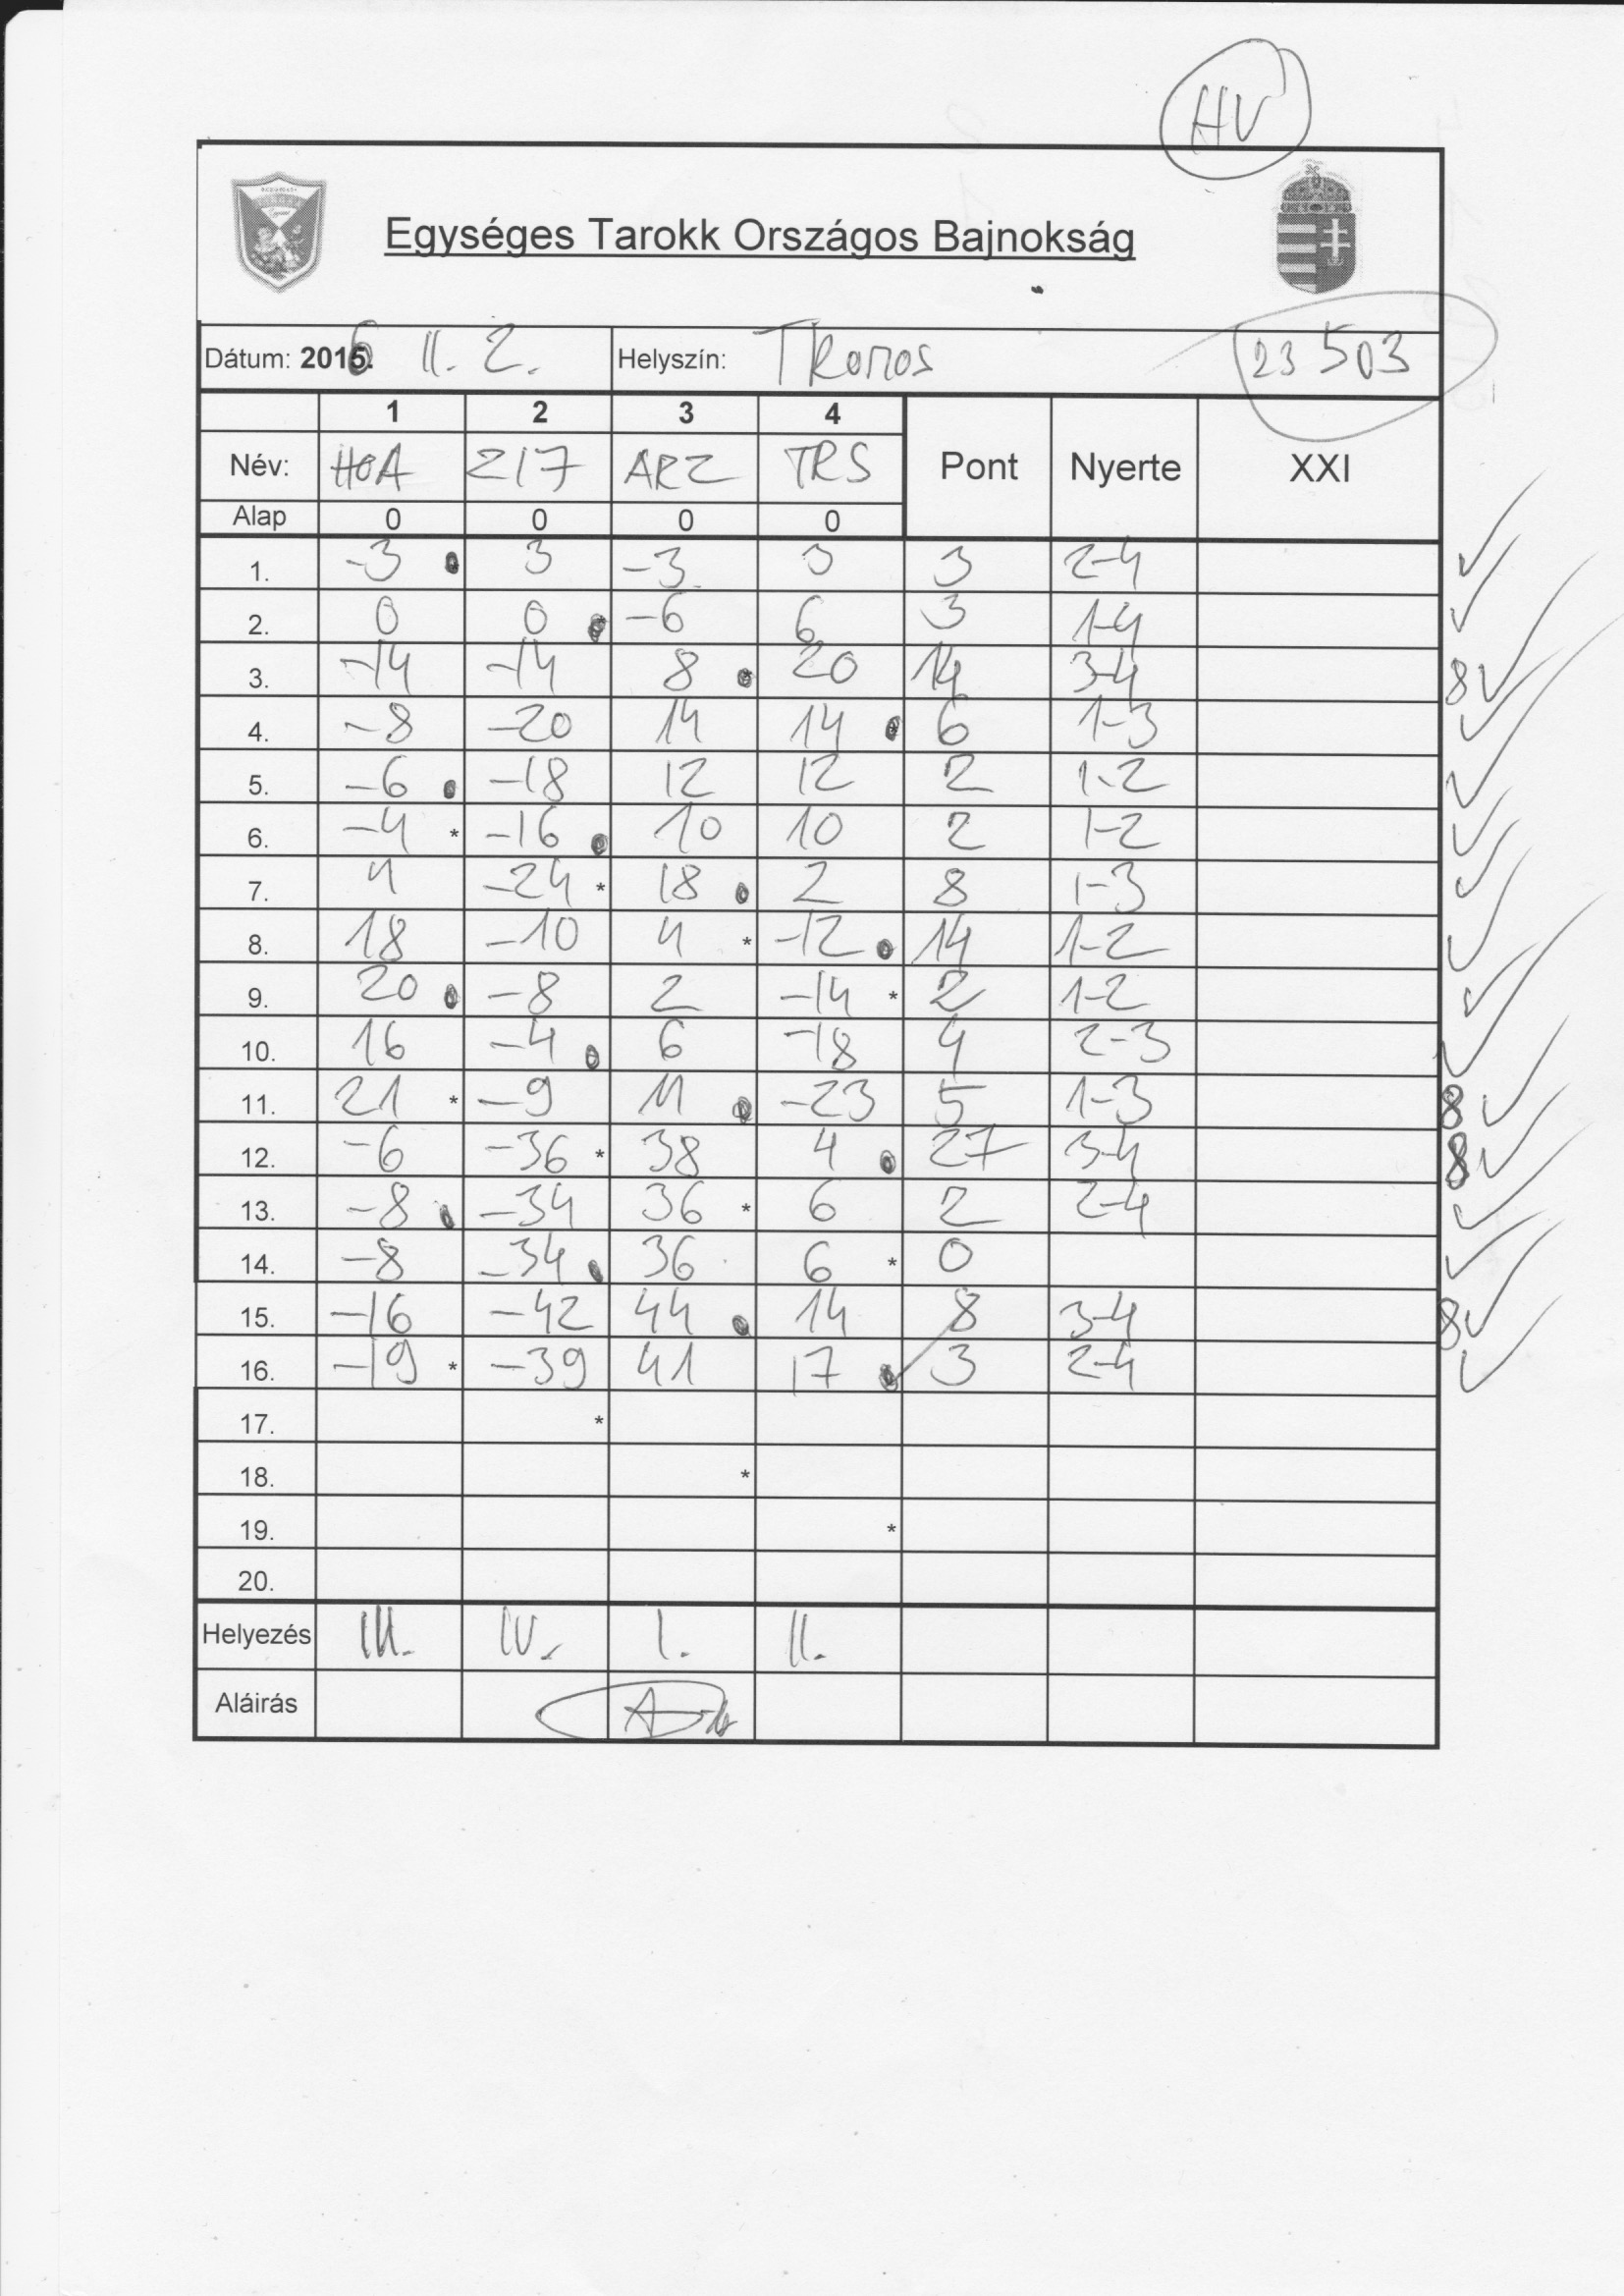 HV
Egységes Tarokk Országos Bajnokság
Dátum: 2016. II. 2. Helyszín: TKaros 23 503
1 2 3 4
Név: HOA ZI7 ARZ TRS Pont Nyerte XXI
Alap 0 0 0 0
1. -3 3 -3 3 3 2-4
2. 0 0 -6 6 3 1-4
3. -14 -14 8 20 14 3-4 8
4. -8 -20 14 14 6 1-3
5. -6 -18 12 12 2 1-2
6. -4 * -16 10 10 2 1-2
7. 4 -24 * 18 2 8 1-3
8. 18 -10 4 * -12 14 1-2
9. 20 -8 2 -14 * 2 1-2
10. 16 -4 6 -18 4 2-3
11. 21 * -9 11 -23 5 1-3 8
12. -6 -36 * 38 4 27 3-4 8
13. -8 -34 36 * 6 2 2-4
14. -8 -34 36 6 * 0
15. -16 -42 44 14 8 3-4 8
16. -19 * -39 41 17 3 2-4
17. *
18. *
19. *
20.
Helyezés III. IV. I. II.
Aláirás